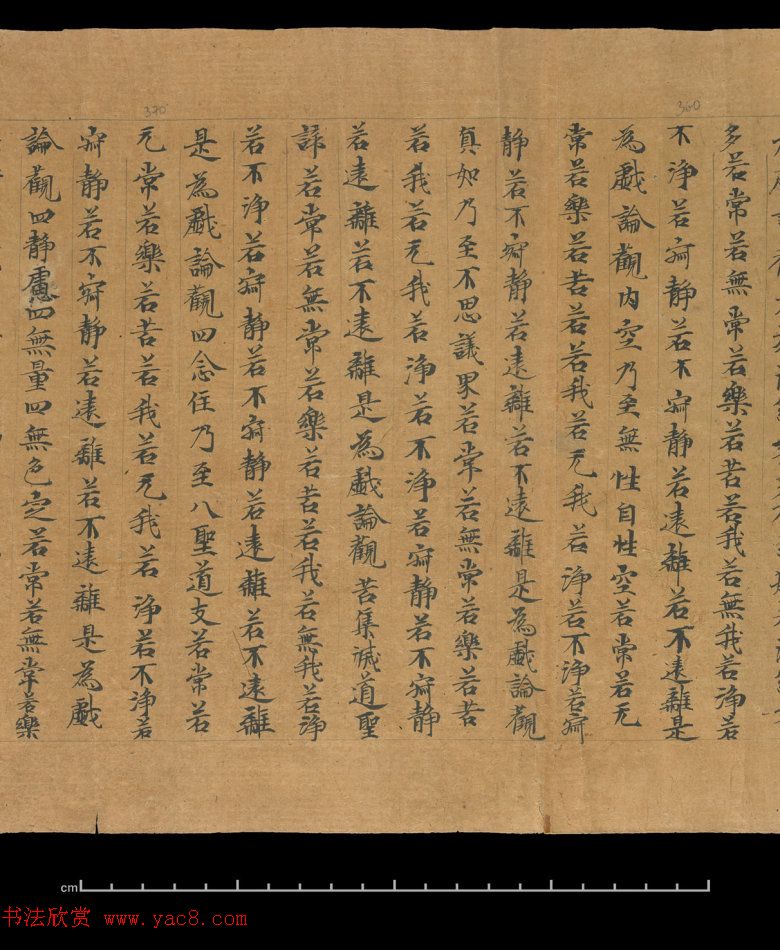 360
370
多若常若無常若樂若苦若我若無我若淨若
不淨若寂静若不寂静若遠離若不遠離是
為戲論觀内空乃至無性自性空若常若无
常若樂若苦若若我若无我若淨若不淨若寂
静若不寂静若遠離若不遠離是為戲論觀
真如乃至不思議界若常若無常若樂若苦
若我若无我若淨若不淨若寂静若不寂静
若遠離若不遠離是為戲論觀苦集滅道聖
諦若常若無常若樂若苦若我若無我若淨
若不淨若寂静若不寂静若遠離若不遠離
是為戲論觀四念住乃至八聖道支若常若
无常若樂若苦若我若无我若淨若不淨若
寂静若不寂静若遠離若不遠離是為戲
論觀四静慮四無量四無色定若常若無常若樂
cm
书法欣赏 www.yac8.com